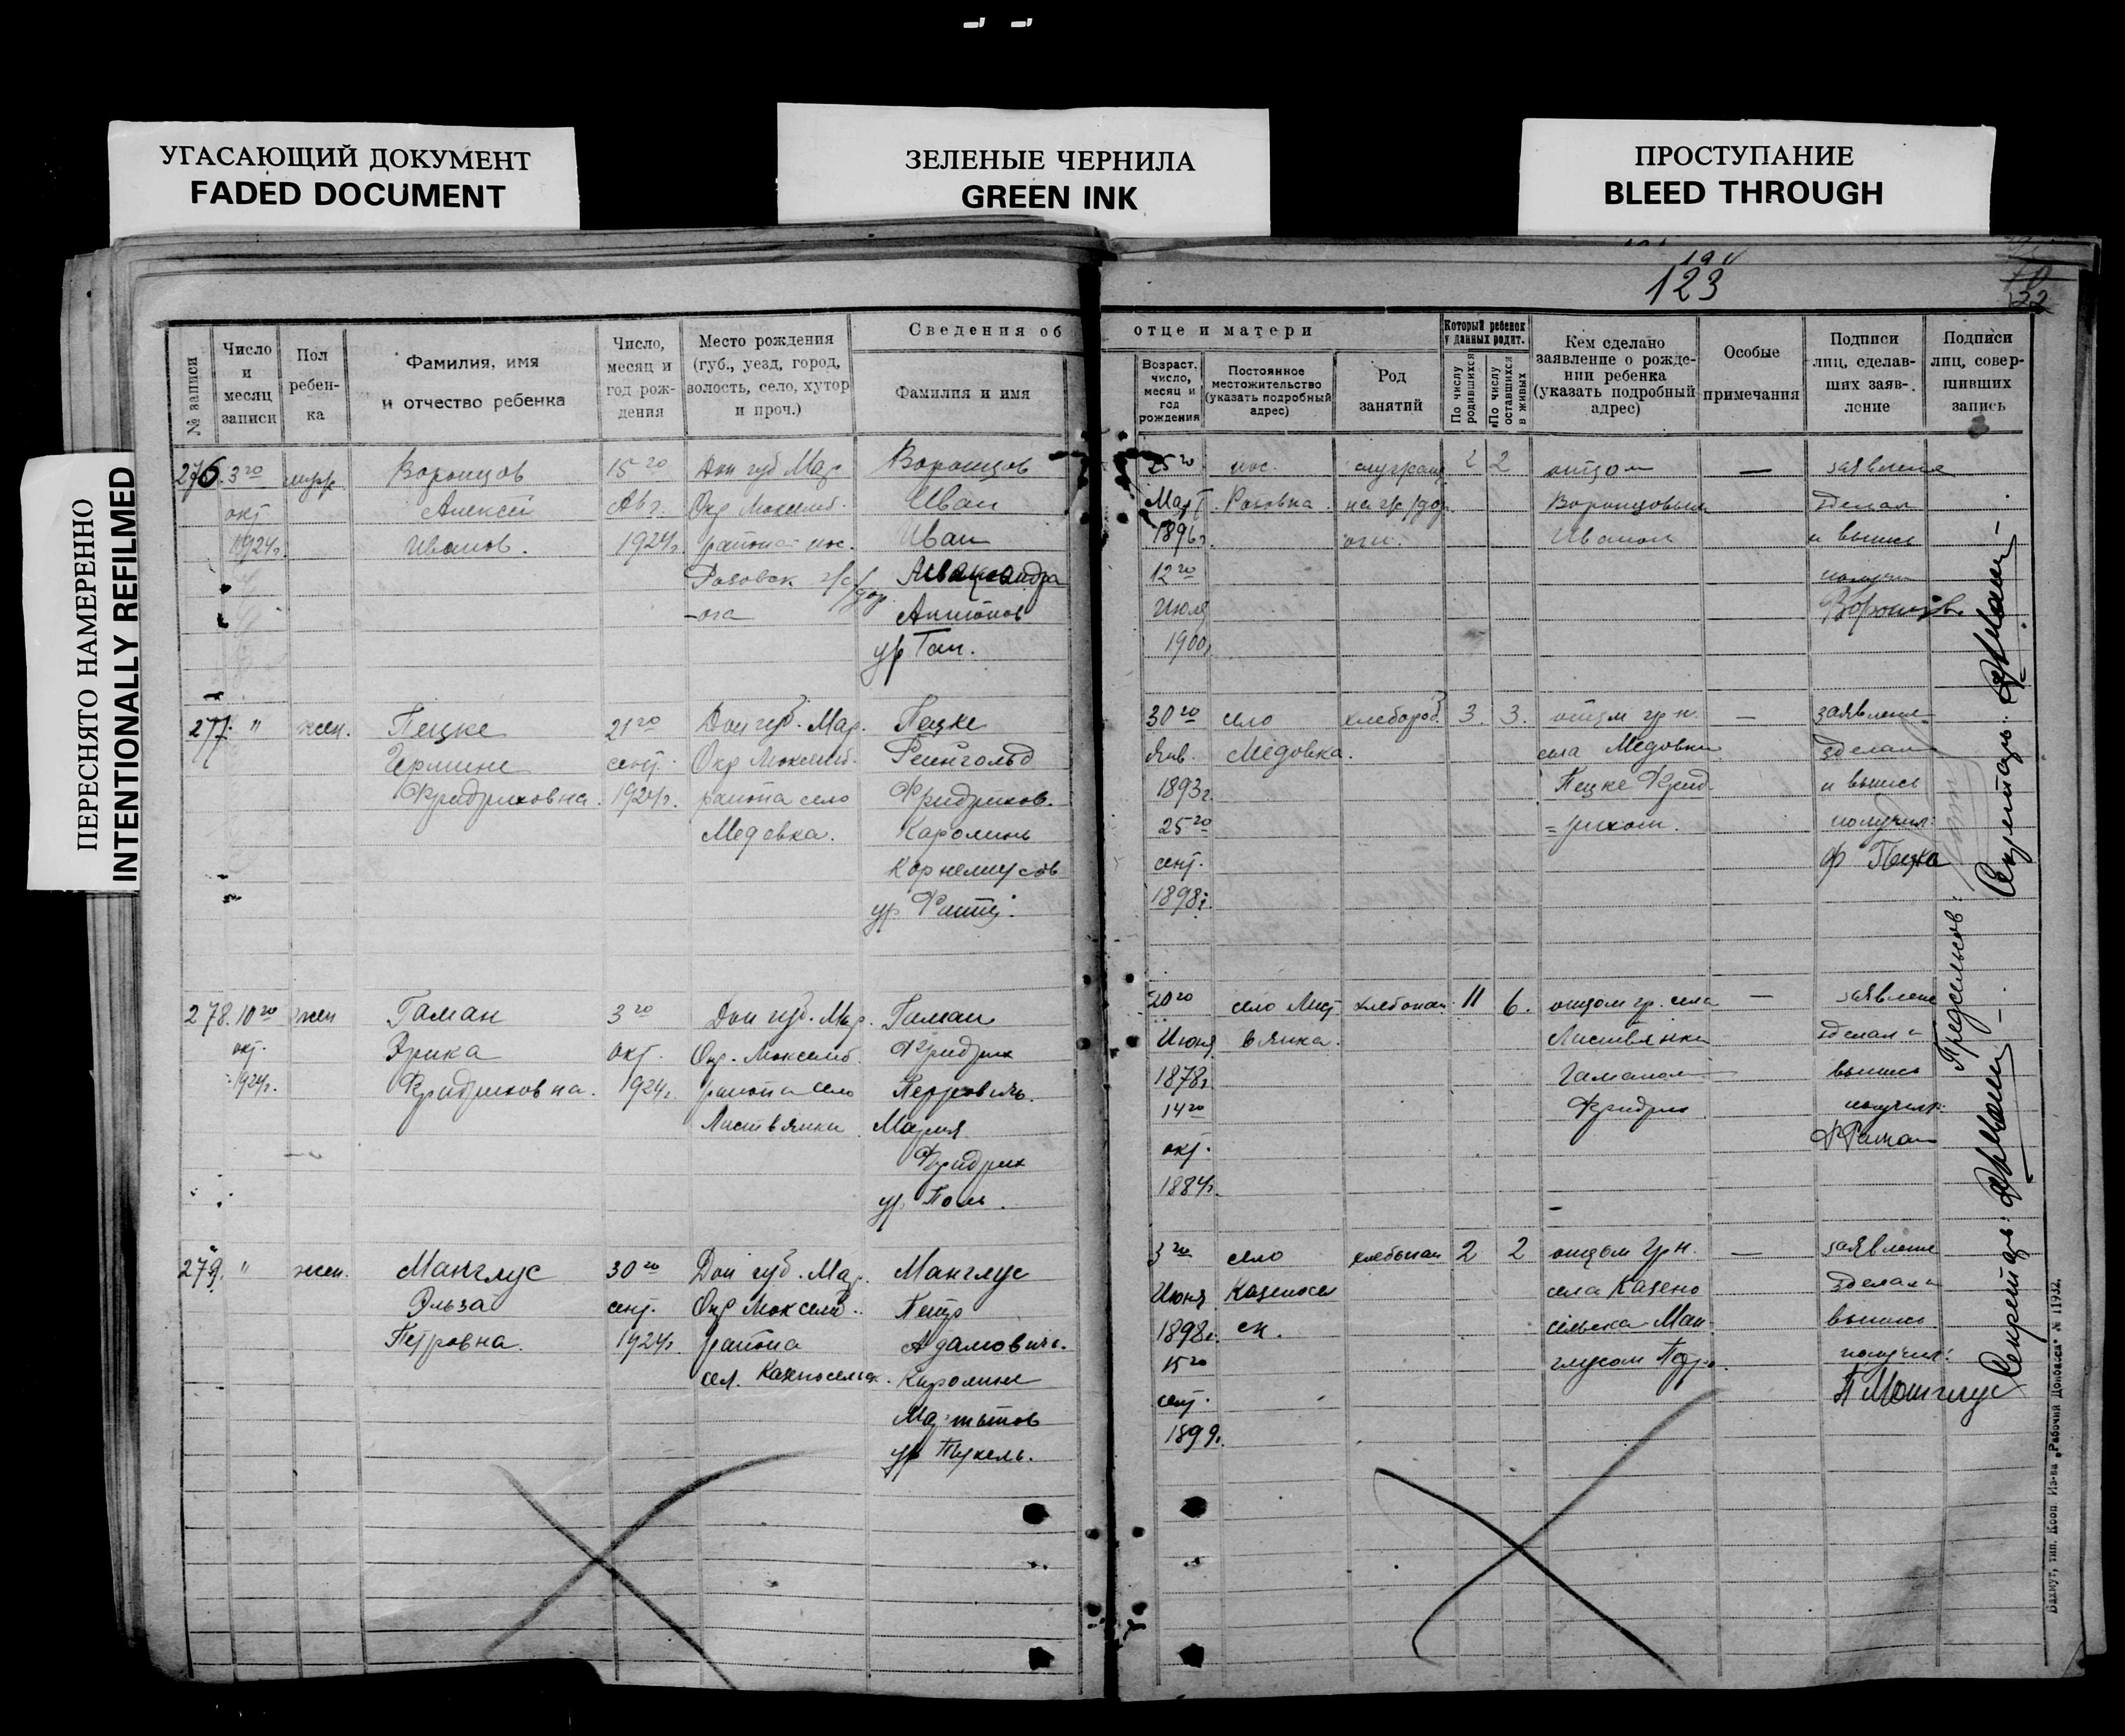 УГАСАЮЩИЙ ДОКУМЕНТ
FADED DOCUMENT
ЗЕЛЕНЫЕ ЧЕРНИЛА
GREEN INK
ПРОСТУПАНИЕ
BLEED THROUGH
ПЕРЕСНЯТО НАМЕРЕННО
INTENTIONALLY REFILMED
123
22
№ записи
Число
и
месяц
записи
Пол
ребен-
ка
Фамилия, имя
и отчество ребенка
Число,
месяц и
год рож-
дения
Место рождения
(губ., уезд, город,
волость, село, хутор
и проч.)
Сведения об отце и матери
Фамилия и имя
Возраст,
число,
месяц и
год
рождения
Постоянное
местожительство
(указать подробный
адрес)
Род
занятий
Который ребенок
у данных родит.
По числу
родившихся
По числу
оставшихся
в живых
Кем сделано
заявление о рожде-
нии ребенка
(указать подробный
адрес)
Особые
примечания
Подписи
лиц, сделав-
ших заяв-
ление
Подписи
лиц, совер-
шивших
запись
276. 3го
окт.
1924г.
муж.
Воронцов
Алексей
Иванов.
15го
Авг.
1924г.
Дон губ Мар.
района пос.
Воронцов
Иван
Иван
Александра
Антонов
ур Ган.
25го
Март
1896г.
12го
Июля
1900г.
пос.
Розовка
2 2
отцом
Воронцовым
Иваном
—
заявление
зделал
и выпись
получил
277. "
жен.
Пецке
Гермине
Фридриховна.
21го
сент.
1924г.
Дон губ. Мар.
района село
Медовка.
Пецке
Рейнгольд
Фридрихов.
Каролина
Корнелиусов
30го
Янв.
1893г.
25го
сент.
1898г.
село
Медовка.
хлебороб.
3. 3.
отцом гр-н.
села Медовки
Пецке Фрид-
=рихом.
—
заявление
зделал
и выпись
получил:
278. 10го
окт.
1924г.
жен
Гаман
Эрика
Фридриховна.
3го
окт.
1924г.
Дон губ. Мар.
района село
Листвянки
Гаман
Фридрих
Петрович.
Мария
Фридрих
20го
Июня
1878г.
14го
окт.
1884г.
село Лист
вянка.
хлебопаш.
11 6.
отцом гр. села
Листвянки
Гаманом
Фридрих
—
заявление
зделал и
выпись
получил:
Ф Гаман
279. "
жен.
Манглус
Эльза
Петровна.
30го
сент.
1924г.
Дон губ. Мар.
района
Манглус
Петр
Адамович.
Каролина
3го
Июня
1898г.
15го
сент.
1899г.
село
Казеносел
ск.
хлебопаш
2 2
отцом гр-н.
села Казено
сельска Ман
глусом Петро.
—
заявление
зделал и
выпись
получил:
П Манглус
Секретарь:
Секретарь:
Бахмут, тип. Кооп. Из-ва „Рабочий Донбасса“ № 11932.